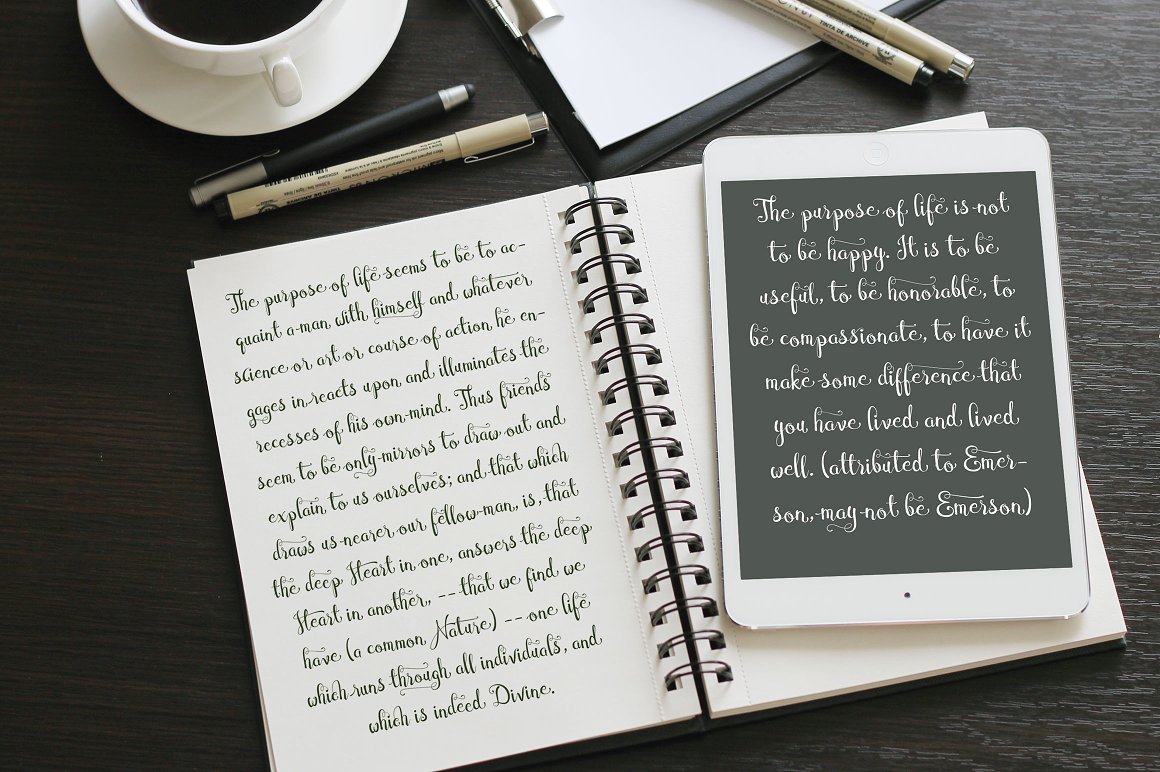 The purpose of life seems to be to ac-
quaint a man with himself and whatever
science or art or course of action he en-
gages in reacts upon and illuminates the
recesses of his own mind. Thus friends
seem to be only mirrors to draw out and
explain to us ourselves; and that which
draws us nearer our fellow-man, is, that
the deep Heart in one, answers the deep
Heart in another, -- that we find we
have (a common Nature) -- one life
which runs through all individuals, and
which is indeed Divine.
The purpose of life is not
to be happy. It is to be
useful, to be honorable, to
be compassionate, to have it
make some difference that
you have lived and lived
well. (attributed to Emer-
son, may not be Emerson)
TINTA DE ARCHIVE